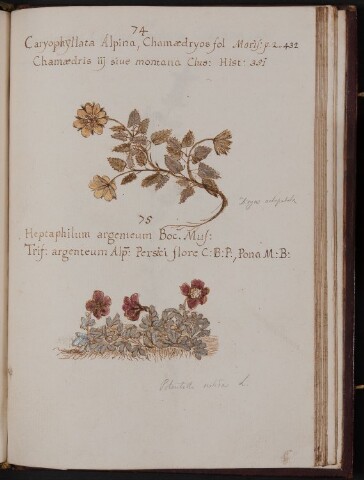 74
Caryophyllata Alpina, Chamædryos fol Moris: p. 2. 432
Chamædris iij siue montana Clus: Hist: 351
Dryas octopetala
75
Heptaphilum argenteum Boc. Mus:
Trif: argenteum Alp: Persici flore C: B: P:, Pona M: B:
Potentilla nitida L.